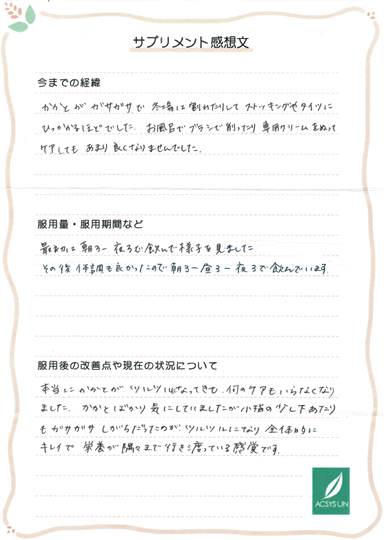 サプリメント感想文
今までの経緯
かかとがガサガサで 冬場は割れたりして ストッキングやタイツに
ひっかかるほどでした。お風呂でブラシで削ったり 専用クリームをぬって
ケアしても あまり良くなりませんでした。
服用量・服用期間など
最初は 朝3ー夜3で飲んで様子を見ました
その後 体調も良かったので 朝3ー昼3ー夜3で飲んでいます。
服用後の改善点や現在の状況について
本当にかかとがツルツルになってきて、何のケアもいらなくなり
ました。かかとばかり気にしていましたが小指の少し下あたり
もガサガサしがちだったのが、ツルツルになり 全体的に
キレイで 栄養が隅々まで行き渡っている感覚です。
ACSYS UN